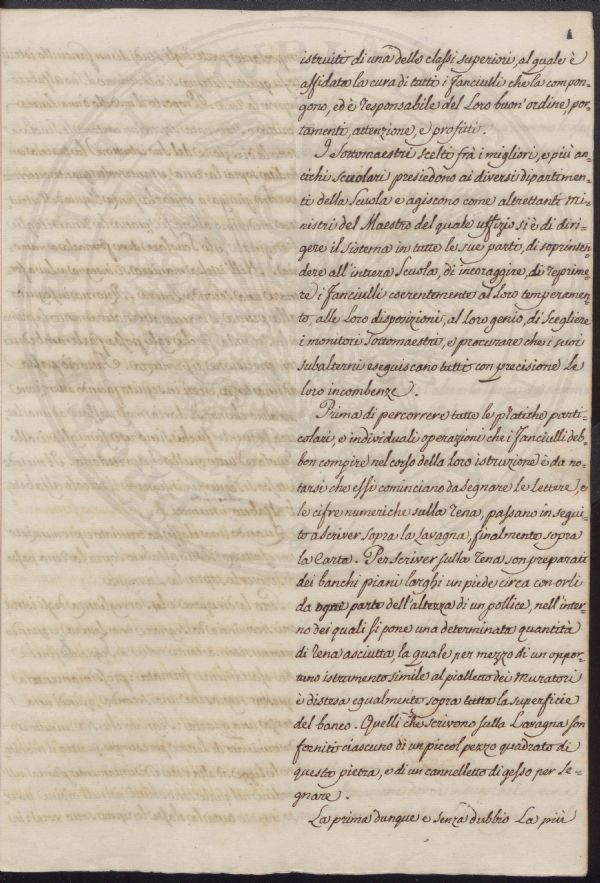 istruiti di una delle classi superiori, al quale è
affidata la cura di tutti i Fanciulli che la compon=
gono, ed è responsabile del Loro buon'ordine, por=
tamenti, attenzione, e profitti.
I Sottomaestri scelti frà i migliori, e più an=
tichi Scuolari presiedono ai diversi dipartimen=
ti della Scuola e agiscono come altrettanti Mi=
nistri del Maestro del quale uffizio si è di diri=
gere il Sistema in tutte le sue parti, di soprinten=
dere all'intiera Scuola, di incoraggire, di reprime=
re i Fanciulli coerentemente al Loro temperamen=
to, alle Loro disposizioni, al Loro genio, di Scegliere
i monitori Sottomaestri, e procurare che i suoi
subalterni eseguiscano tutti con precisione Le
loro incombenze.
Prima di percorrere tutte le pratiche parti=
colari, e individuali operazioni che i Fanciulli deb=
bon compire nel corso della loro istruzione è da no=
tarsi che essi cominciano da segnare Le Lettere, e
le cifre numeriche sulla rena, passano in segui=
to a scriver sopra la Lavagna, finalmente sopra
la Carta. Per scriver sulla rena son preparati
dei banchi piani larghi un piede circa con orli
da ogni parte dell'altezza di un pollice, nell'inter=
no dei quali si pone una determinata quantità
di rena asciutta, la quale per mezzo di un oppor=
tuno istrumento simile al pialletto dei Muratori
è distesa egualmente sopra tutta la superficie
del banco. Quelli che scrivono sulla Lavagna son
forniti ciascuno di un piccol pezzo quadrato di
questa pietra, e di un cannelletto di gesso per se=
gnare.
La prima dunque e senza dubbio La più